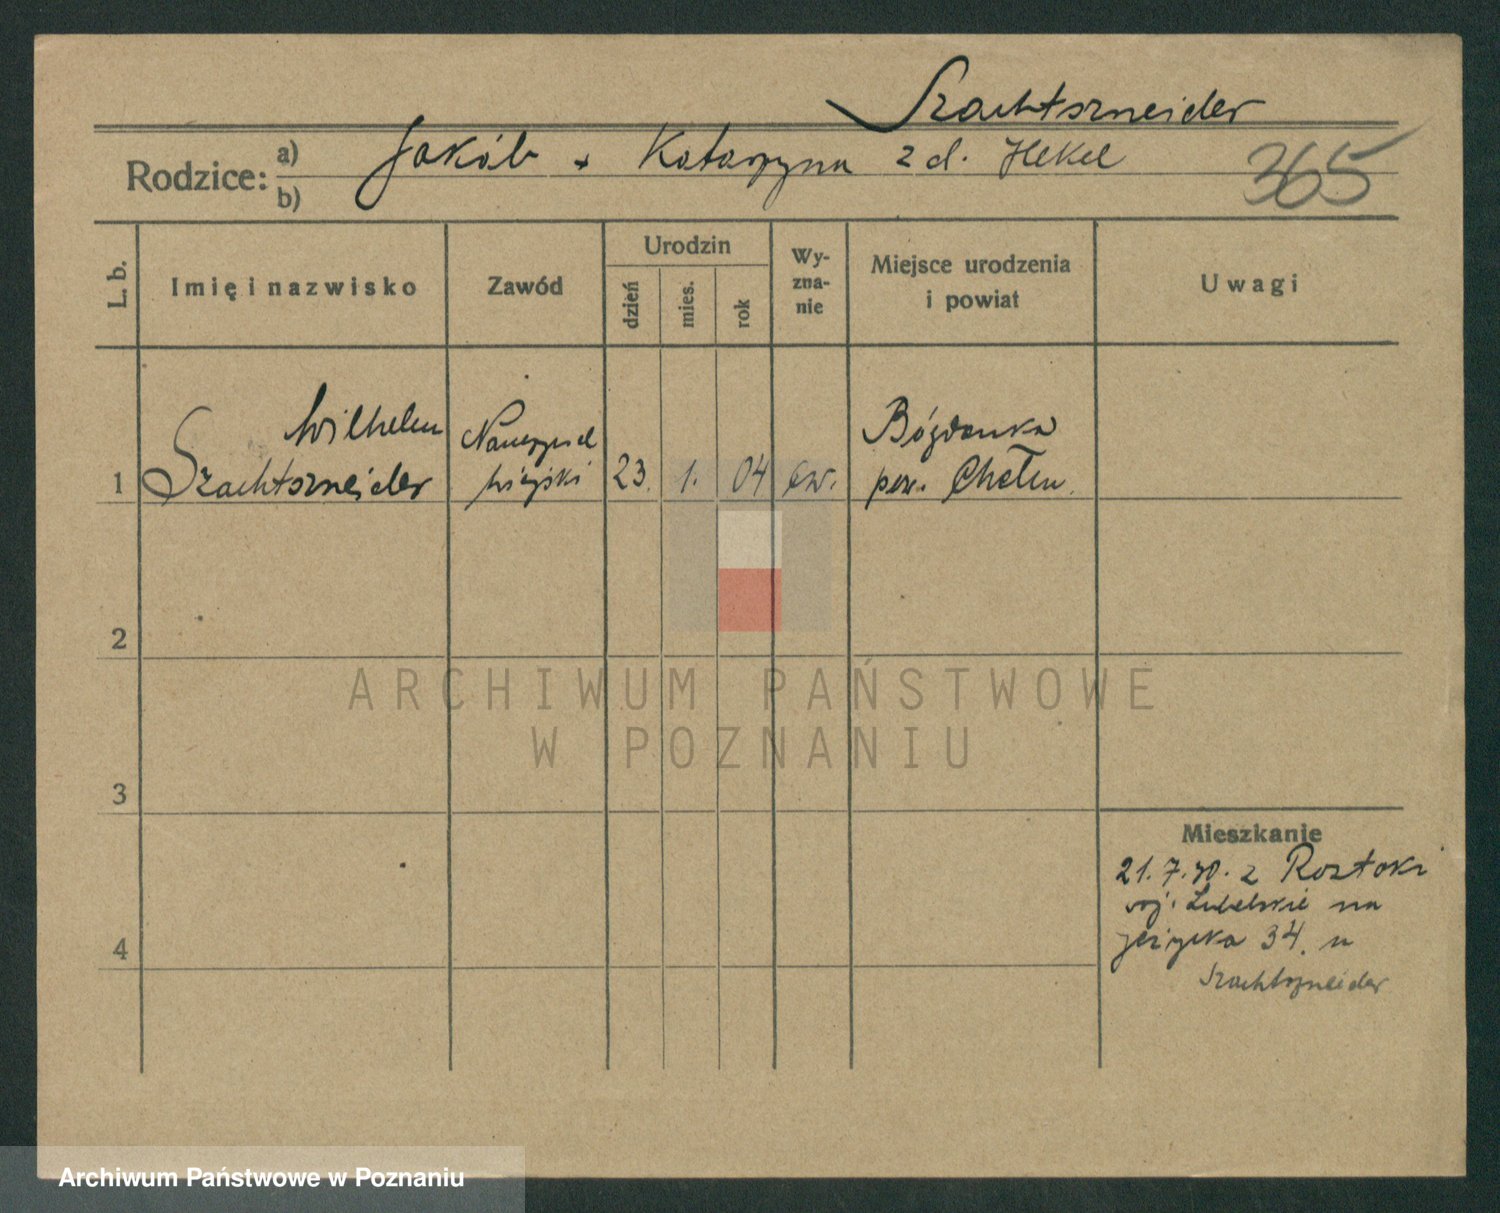 Szachtszneider
Rodzice: a) Jakób + Katarzyna z d. Hekel 365
b)
L. b. Imię i nazwisko Zawód Urodzin dzień mies. rok Wy-zna-nie Miejsce urodzenia i powiat Uwagi
Wilhelm Bógdanka
1 Szachtsznejder 23. 1. 04 ew. pow. Chełm
2
ARCHIWUM PAŃSTWOWE
W POZNANIU
3
Mieszkanie
21.7.30. z Roztoki
woj. Lubelskie na
34. u
4
Szachtszneider
Archiwum Państwowe w Poznaniu